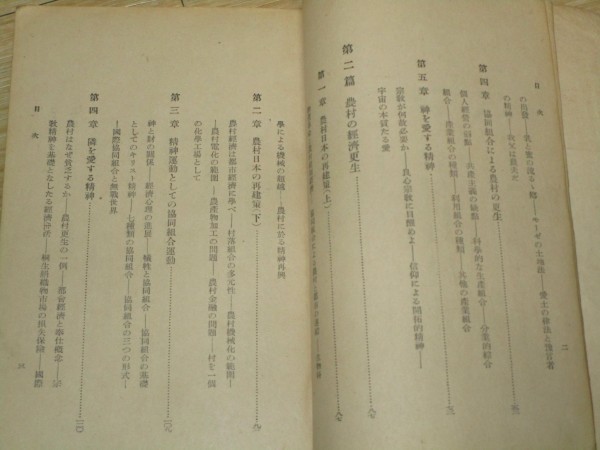 目次
二
の用意――乳と蜜の流るゝ郷――モーゼの土地法――愛土の
の精神
第四章 協同組合による農村の更生
個人経営の組織――共産主義の組織――科學的な生産組合――分業的綜合
組合――産業組合の種類――利用組合の種類――其他の産業組合
第五章 神を愛する精神
宗教が何故必要か――良心宗教に目醒めよ――信仰による開拓的精神――
宇宙の本質たる愛
第二篇 農村の經濟更生
第一章 農村日本の再建策(上)
學による機械の領域――農村に於る精神再興
第二章 農村日本の再建策(下)
農村經濟は都市經濟に學べ――村落組合の多元性――農村機械化の範圍――
農村電化の範圍――農産物加工の問題――農村金融の問題――村を一個
の化學工場として
第三章 精神運動としての協同組合運動
神と財の關係――經濟心理の進展――犠牲と協同組合――協同組合の基礎
としてのキリスト精神――七種類の協同組合――協同組合の三つの形式――
國際協同組合と無戰世界
第四章 隣を愛する精神
農村はなぜ貧乏するか――農村更生の一例――都會經濟と奉仕概念――
教精神を基礎となしたる經濟生活――桐生絹織物市場の損失保險――國際
目次
三